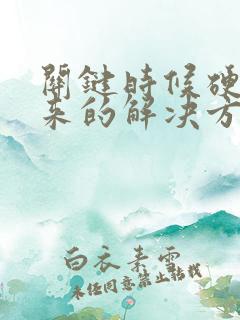 關鍵時候硬
来的解决方
白衣素雪
未经同意禁止转载